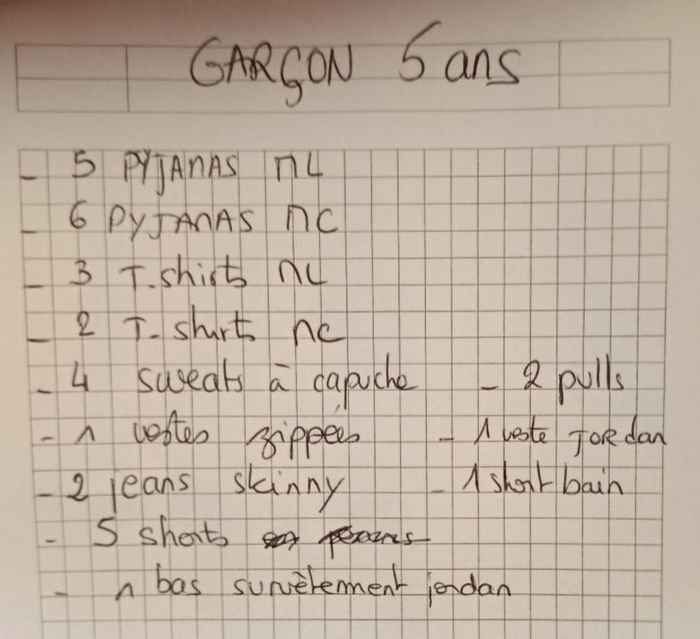 GARÇON 5 ans
- 5 PYJAMAS ML
- 6 PYJAMAS MC
- 3 T.shirts ML
- 2 T-shirts MC
- 4 sweats à capuche - 2 pulls
- 1 vestes zippées - 1 veste JORdan
- 2 jeans skinny - 1 short bain
- 5 shorts
- 1 bas survêtement jordan